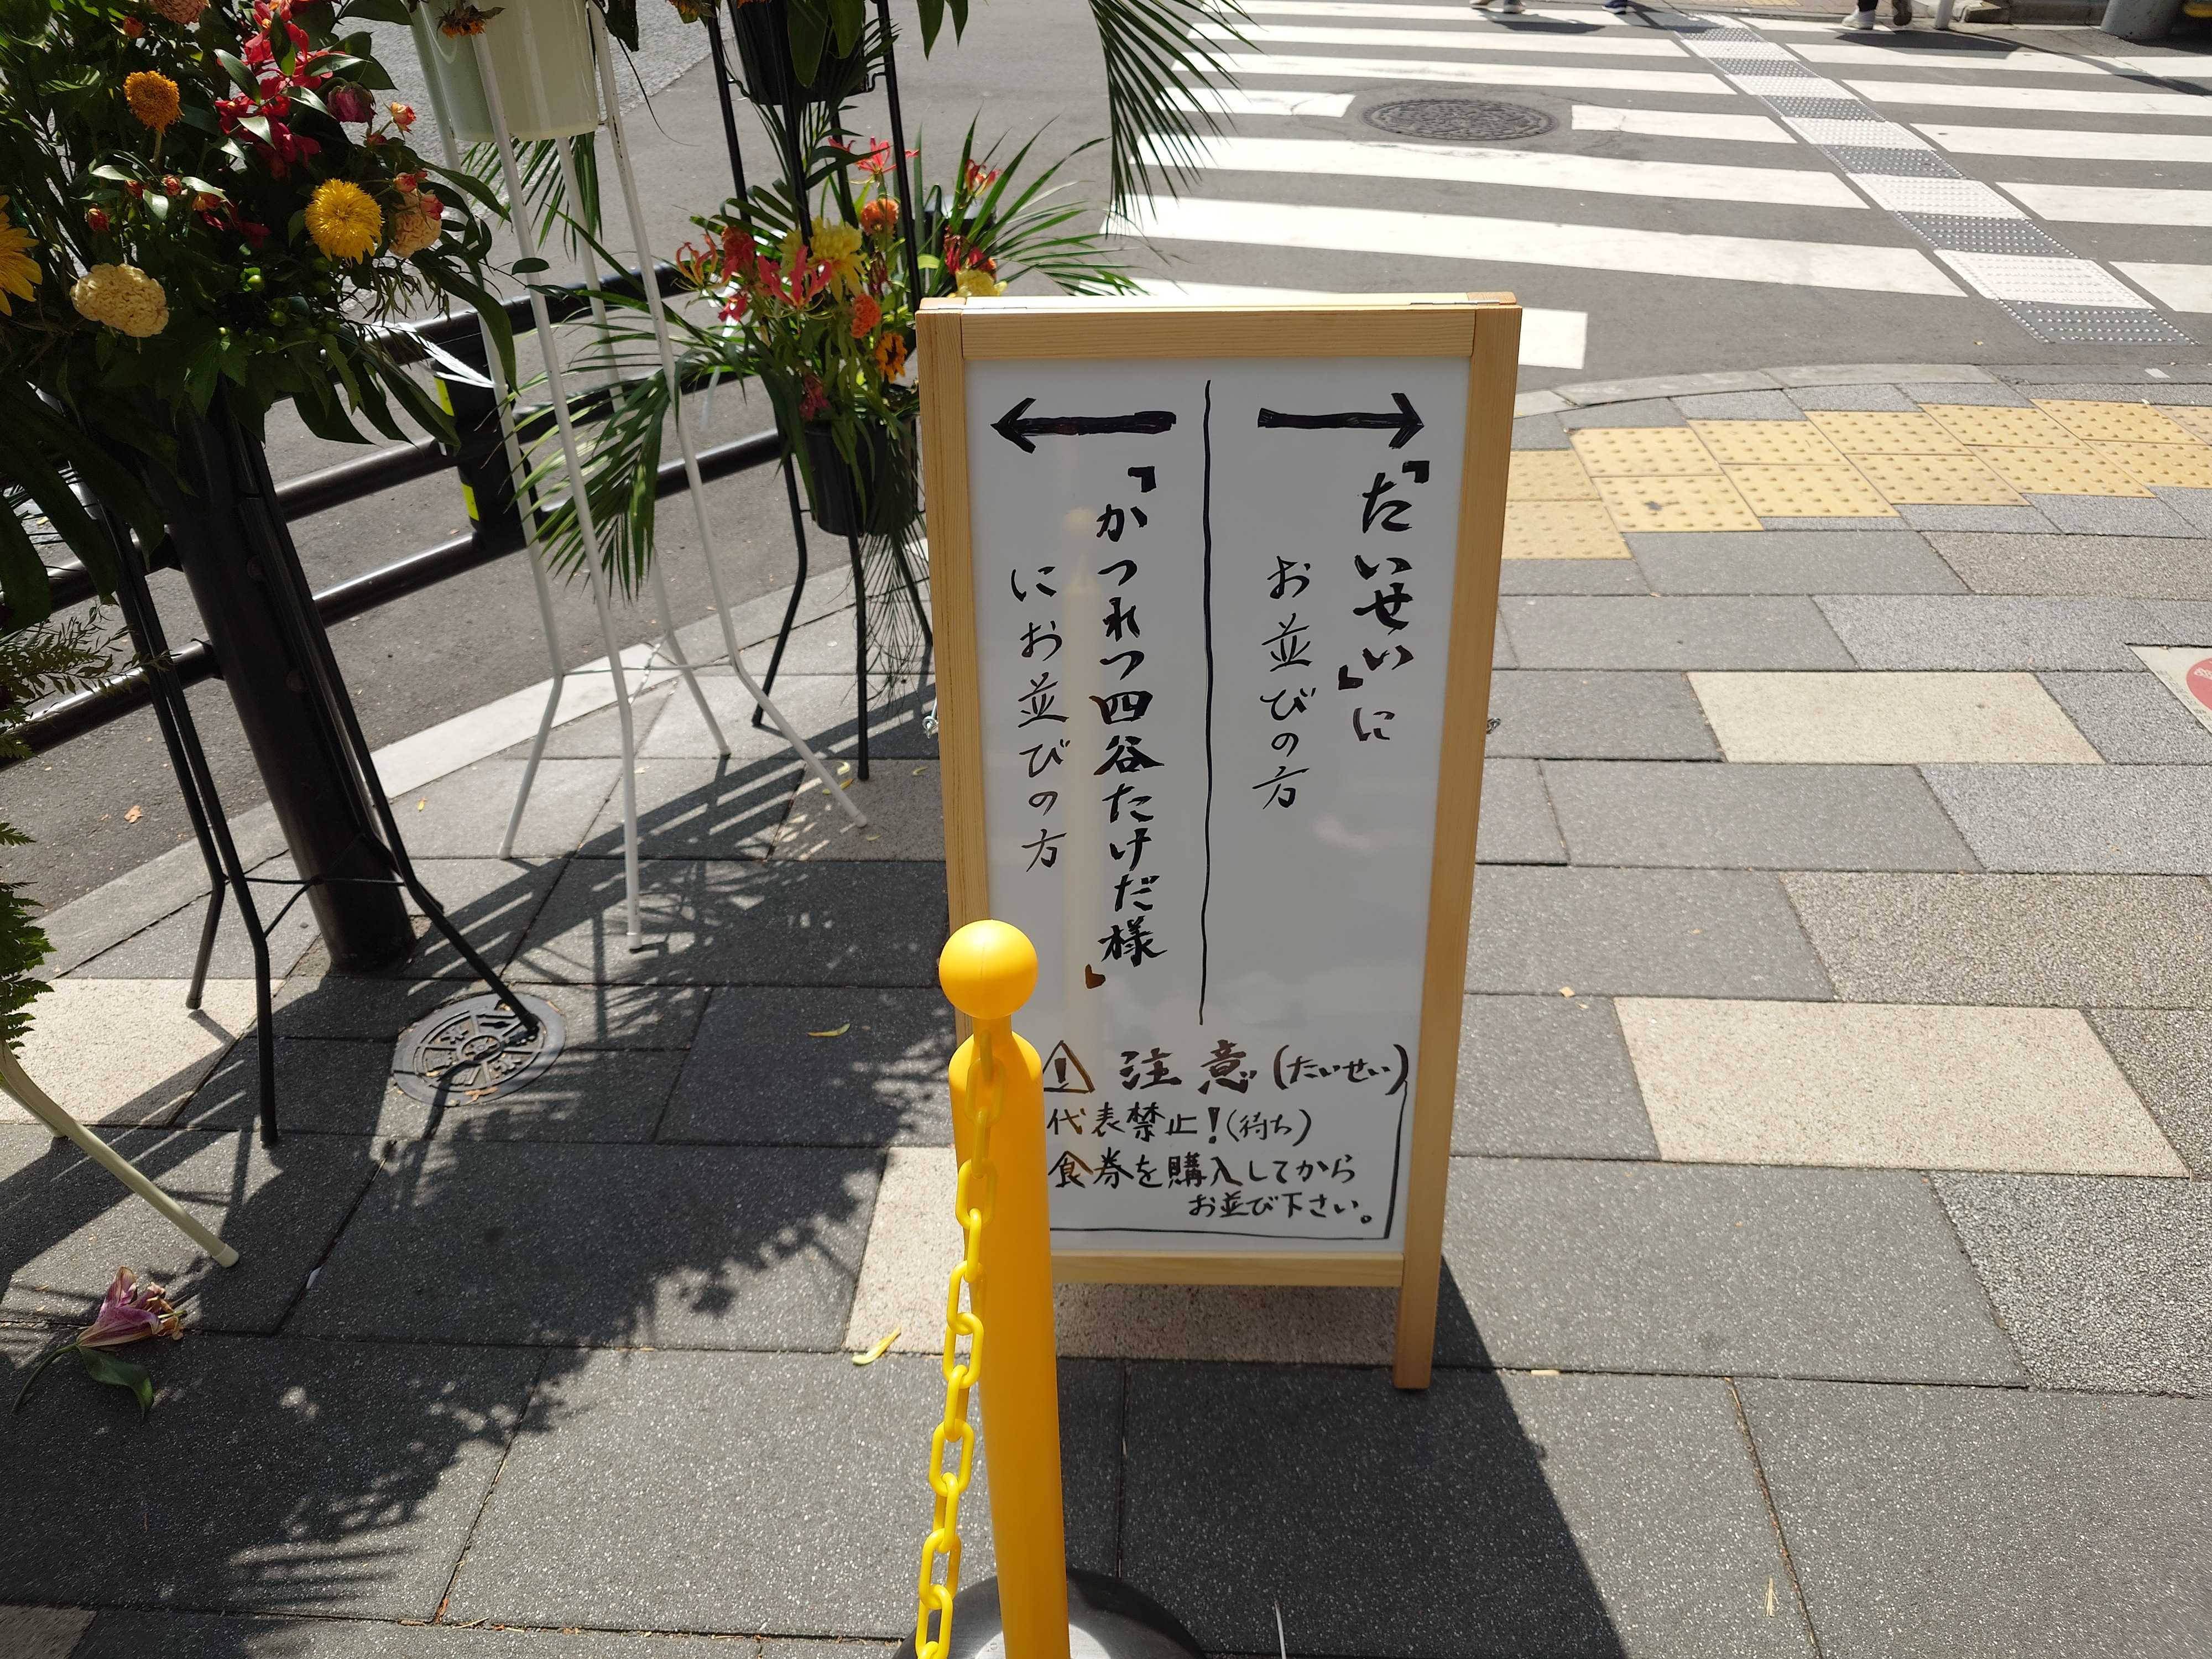 「たいせい」に
お並びの方
「かつれつ四谷たけだ様」
にお並びの方
注意(たいせい)
代表禁止!(待ち)
食券を購入してから
お並び下さい。